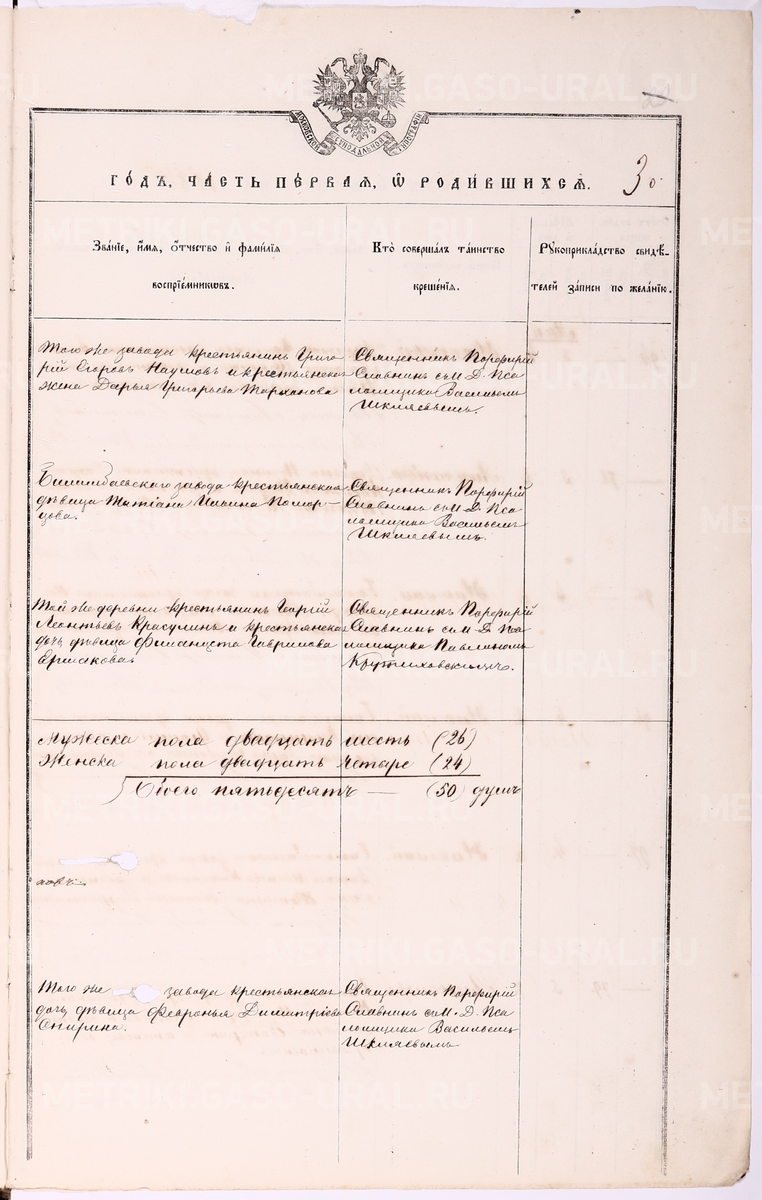 МОСКОВСКОЙ СѴНОДАЛЬНОЙ ТИПОГРАФІИ
30.
ГО́ДЪ, ЧА́СТЬ ПЕ́РВАЯ, Ѡ҆ РОДИ́ВШИХСѦ.
Зва́нїе, и҆́мѧ, ѻ҆́тчество и҆ фами́лїѧ
воспрїе́мникѡвъ.
Кто̀ соверша́лъ та́инство
креще́нїѧ.
Рꙋкоприкла́дство свидѣ́-
телей за́писи по жела́нїю.
Того же завода крестьянинъ Григо
рій Егоровъ Наумовъ и крестьянская
жена Дарья Григорьева Тарханова
Священникъ Порфирій
Славнинъ съ И. Д. Пса
ломщика Васильемъ
Шкляевымъ.
Билимбаевскаго завода крестьянская
дѣвица Татіана Ильина Помор-
цова.
Священникъ Порфирій
Славнинъ съ И. Д. Пса
ломщика Васильемъ
Шкляевымъ.
Той же деревни крестьянинъ Георгій
Леонтьевъ Красулинъ и крестьянская
дочь дѣвица Гавриилова
Ермакова
Священникъ Порфирій
Славнинъ съ И. Д. Пса
ломщика Павлиномъ
Крутиховскимъ.
Мужеска пола двадцать шесть (26)
Женска пола двадцать четыре (24)
Обоего пятьдесятъ — (50) душъ
ковъ
Того же завода крестьянская
дочь дѣвица Февронья Димитріева
Спирина.
Священникъ Порфирій
Славнинъ съ И. Д. Пса
ломщика Васильемъ
Шкляевымъ
METRIKI.GASO-URAL.RU